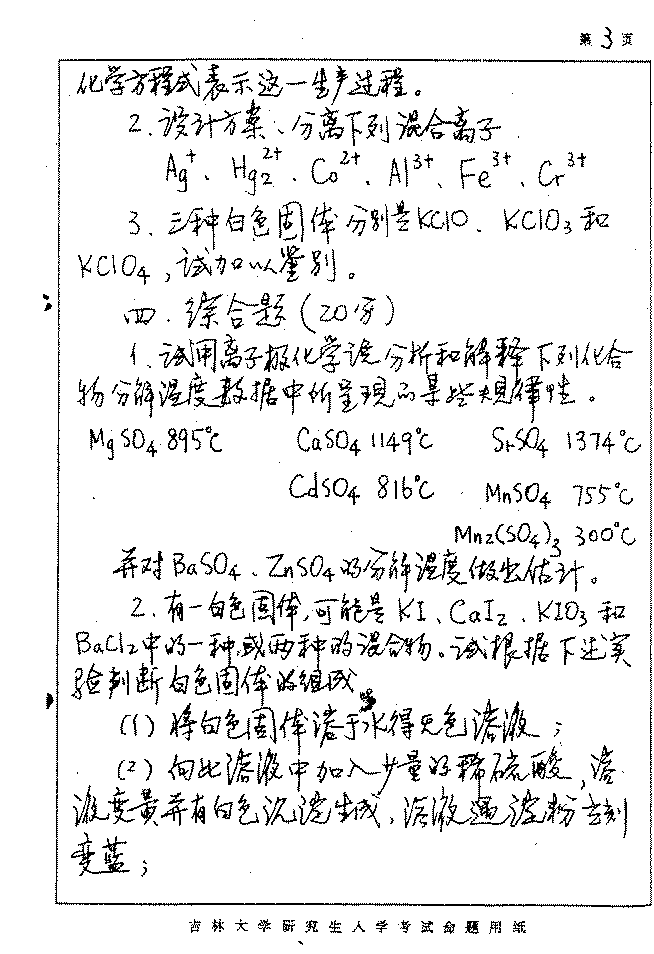 第3页
化学方程式表示这一生产过程。
2、设计方案、分离下列混合离子
Ag⁺、Hg₂²⁺、Co²⁺、Al³⁺、Fe³⁺、Cr³⁺
3、三种白色固体分别是KClO、KClO₃和
KClO₄,试加以鉴别。
四、综合题(20分)
1、试用离子极化学说分析和解释下列化合
物分解温度数据中所呈现的某些规律性。
MgSO₄ 895℃ CaSO₄ 1149℃ SrSO₄ 1374℃
CdSO₄ 816℃ MnSO₄ 755℃
Mn₂(SO₄)₃ 300℃
并对BaSO₄、ZnSO₄的分解温度做出估计。
2、有一白色固体,可能是KI、CaI₂、KIO₃和
BaCl₂中的一种或两种的混合物。试根据下述实
验判断白色固体的组成
(1)将白色固体溶于水得无色溶液;
(2)向此溶液中加入少量的稀硫酸,溶
液变黄并有白色沉淀生成,溶液遇淀粉立刻
变蓝;
吉林大学研究生入学考试命题用纸